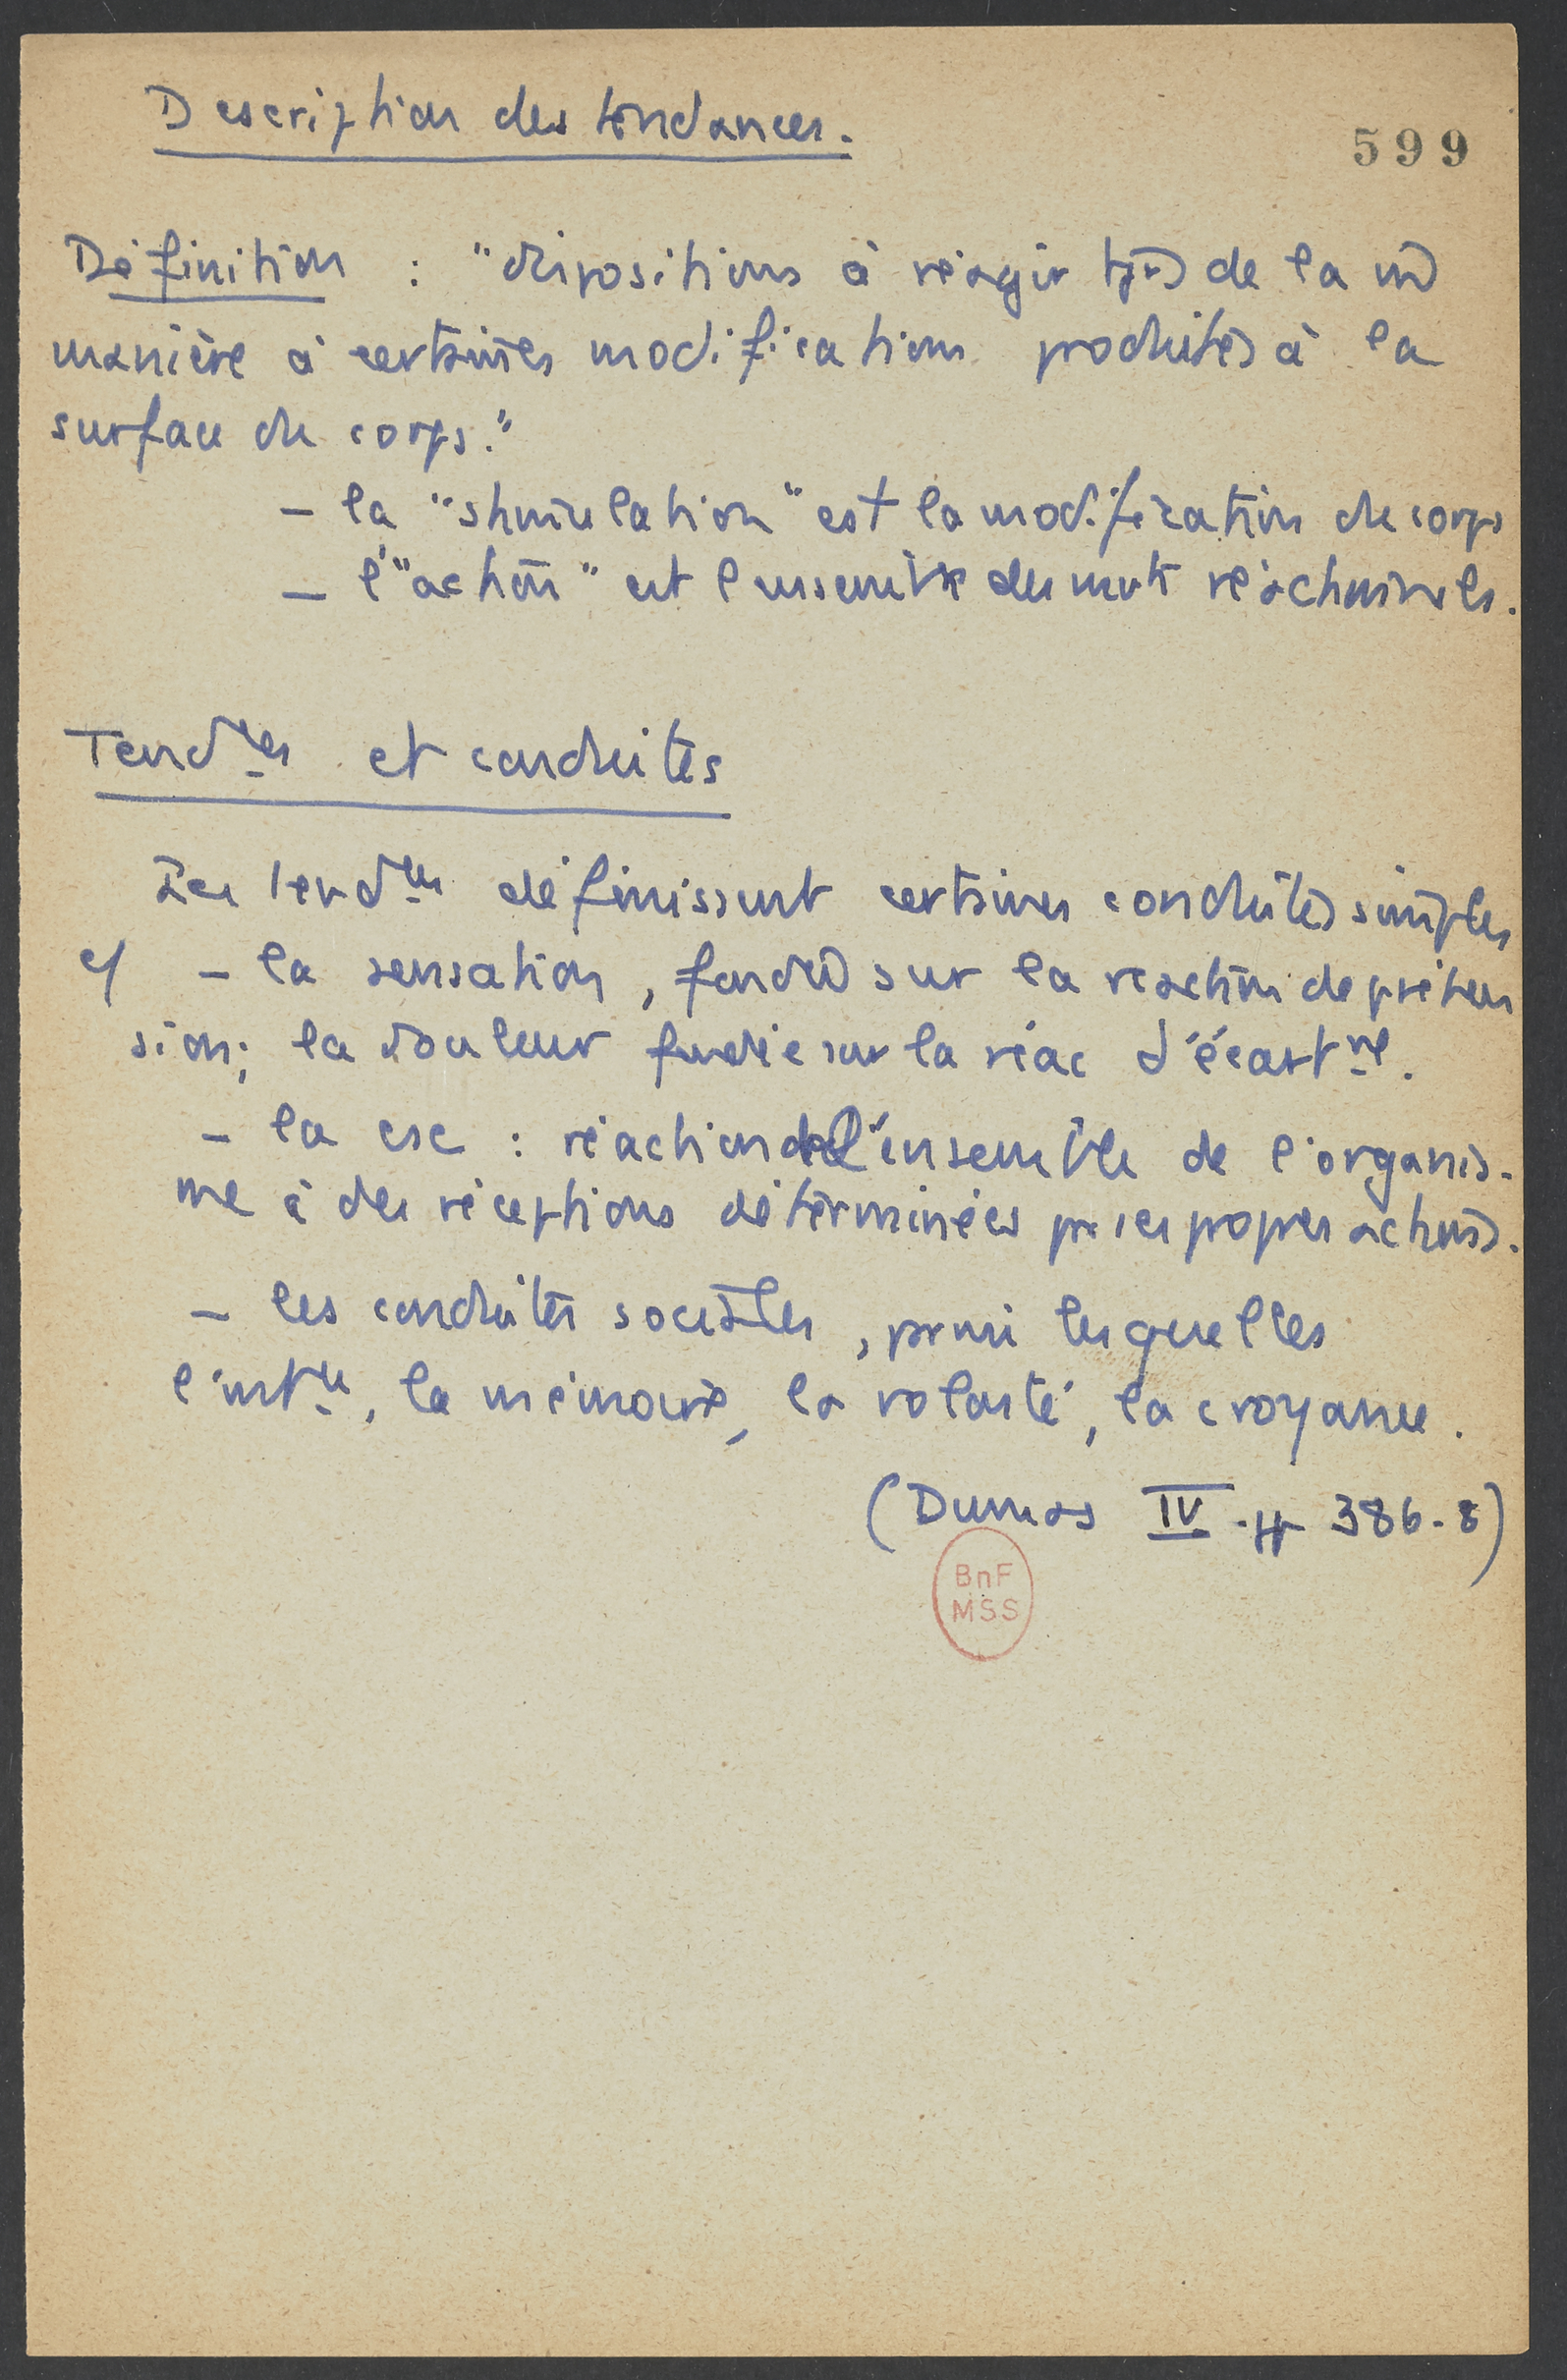 Description des tendances.
599
Définition : "dispositions à réagir tjrs de la m
manière à certaines modifications produites à la
surface du corps."
– la "stimulation" est la modification du corps
– l'"action" est l'ensemble des mvts réactionnels.
Tendces et conduites
Les tendces définissent certaines conduites simples
cf – la sensation, fondée sur la réaction de préhen
sion; la douleur fondée sur la réac d'écartmt.
– la csc : réaction de l'ensemble de l'organis-
me à des réceptions déterminées par ses propres actions.
– les conduites sociales, parmi lesquelles
l'intce, la mémoire, la volonté, la croyance.
(Dumas IV. pp 386-8)
BnF
MSS